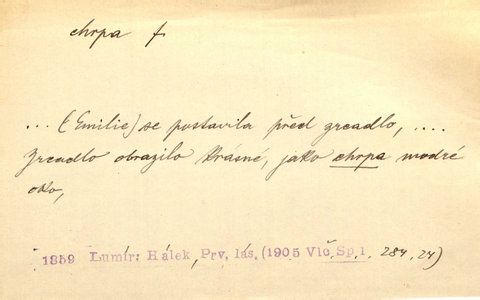 chrpa f
... (Emilie) se postavila před zrcadlo, ....
Zrcadlo obrazilo krásné, jako chrpa modré
oko,
1859 Lumír: Hálek, Prv. lás. (1905 Vlč, Sp 1, 284, 24)